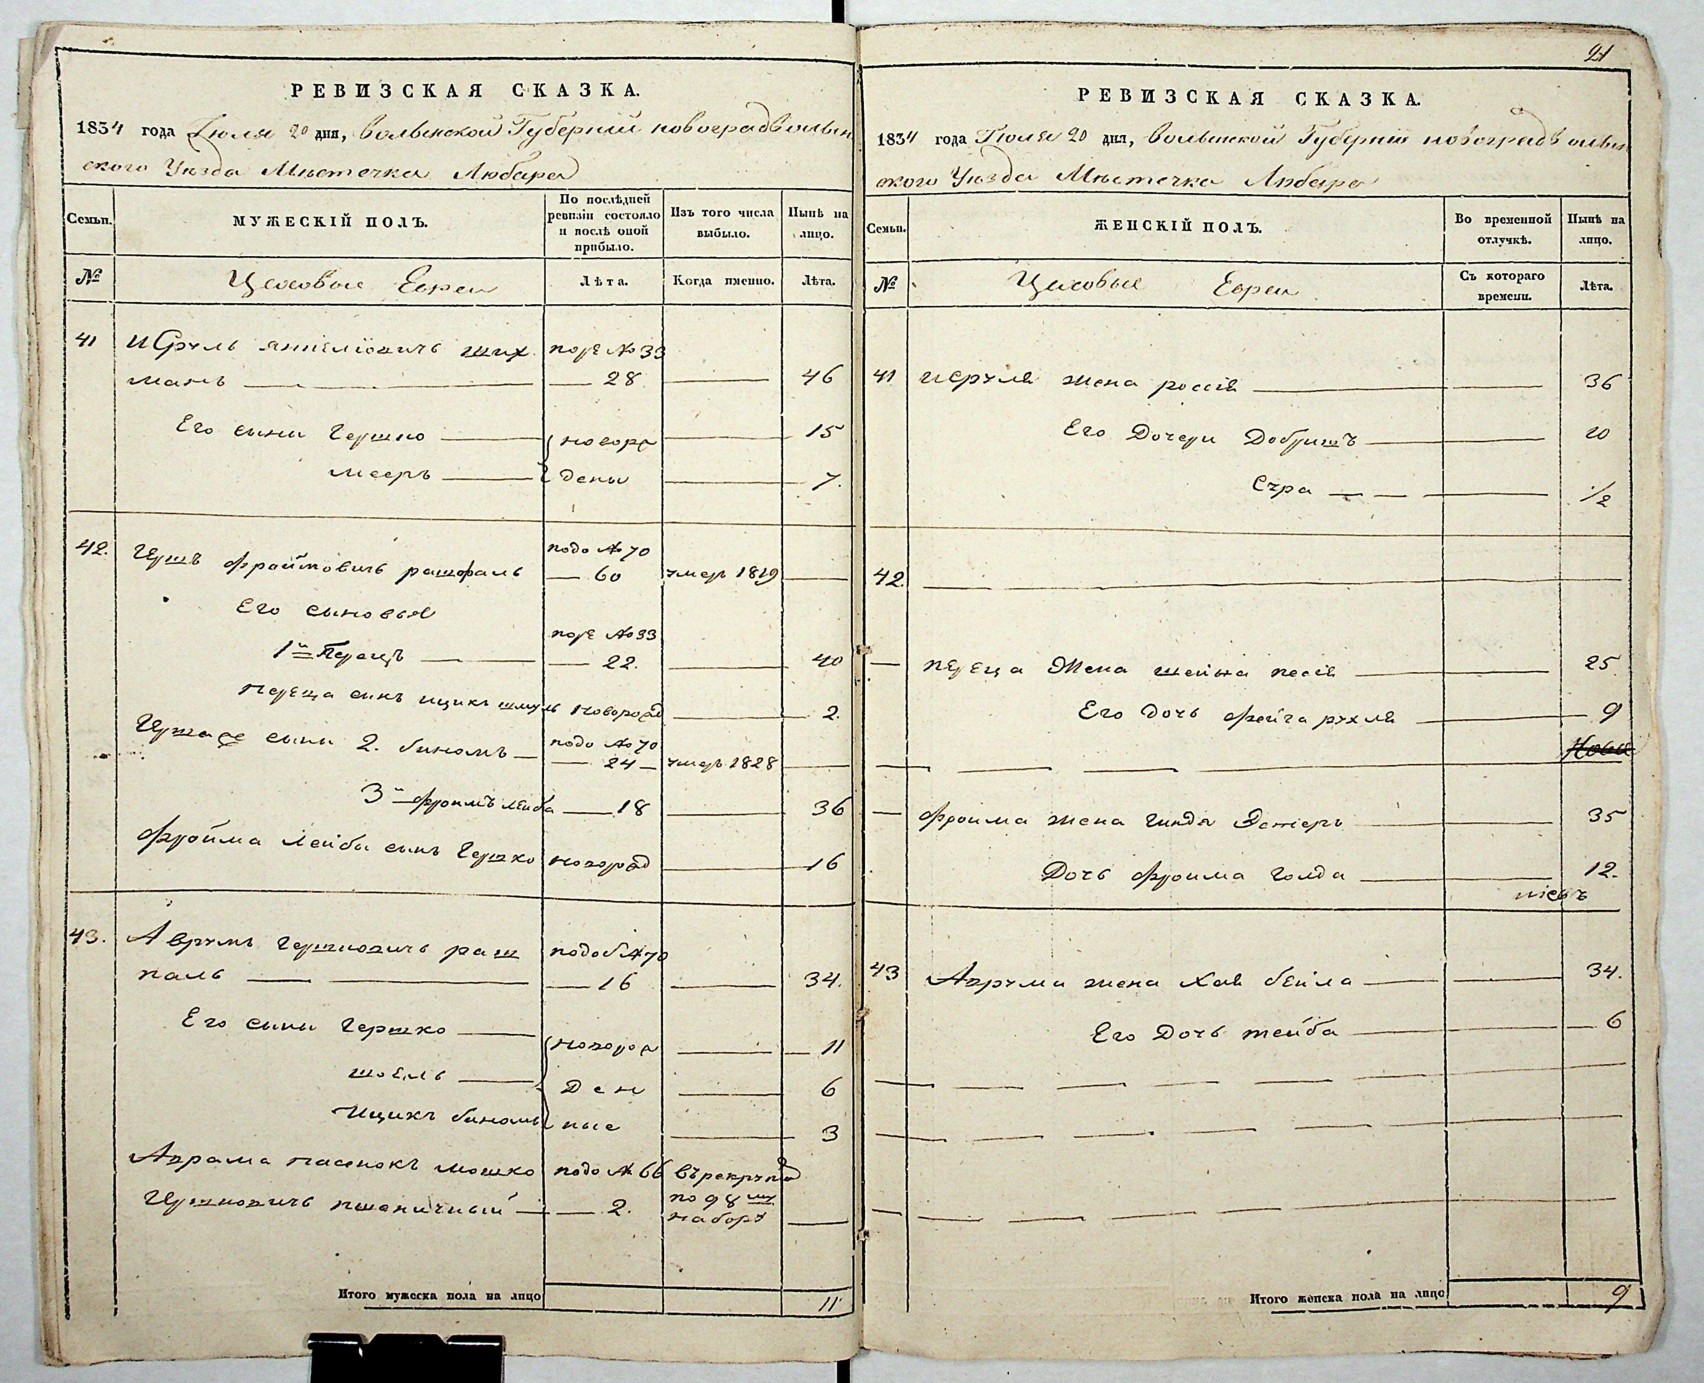 РЕВИЗСКАЯ СКАЗКА.
1834 года Іюля 20 дня, Волынской Губерніи новоградволын
ского Уѣзда Мѣстечка Любара
Семьи.
МУЖЕСКІЙ ПОЛЪ.
По послѣдней ревизіи состояло и послѣ оной прибыло.
Изъ того числа выбыло.
Нынѣ на лицо.
№
Цеховые Евреи
Лѣта.
Когда именно.
Лѣта.
41 исруль янкелiовичъ ших поре № 33
манъ 28 46
Его сыни Гершко новоро 15
мееръ дены 7.
42. Гершъ фроймовичъ рашфаль подо № 70
60 умеръ 1819
Его сыновья
1й Перецъ поре № 33
22. 40
Переца сынъ ицикъ шмуль новорорд 2.
Герша сыни 2. биномъ подо № 70
24 умеръ 1828
3й фроимъ леиба 18 36
Фройма Лейбы сынъ Гершко новород 16
43. Аврумъ Гершковичъ раш подоб № 70
паль 16 34.
Его сыни Гершко новоро 11
шоель ден 6
Ицикъ биномъ ные 3
Аврама пасинокъ мошко подо № 66 въ рекруты
Гершковичъ пшеничный 2. по 98му
набору
Итого мужеска пола на лицо 11
21
РЕВИЗСКАЯ СКАЗКА.
1834 года Іюля 20 дня, Волынской Губерніи новоградволын
ского Уѣзда Мѣстечка Любара
Семьи.
ЖЕНСКІЙ ПОЛЪ.
Во временной отлучкѣ.
Нынѣ на лицо.
№
Цеховые Евреи
Съ котораго времени.
Лѣта.
41 исруля жена россія 36
Его Дочери Добришъ 20
Сура 1/2
42.
переца Жена шейна песія 25
Его дочь фейга рухля 9
фроима жена гинда Эстеръ 35
Дочь Фроима голда 12.
43 Аврума жена Хая бейла 34.
Его Дочь тейба 6
Итого женска пола на лицо 9